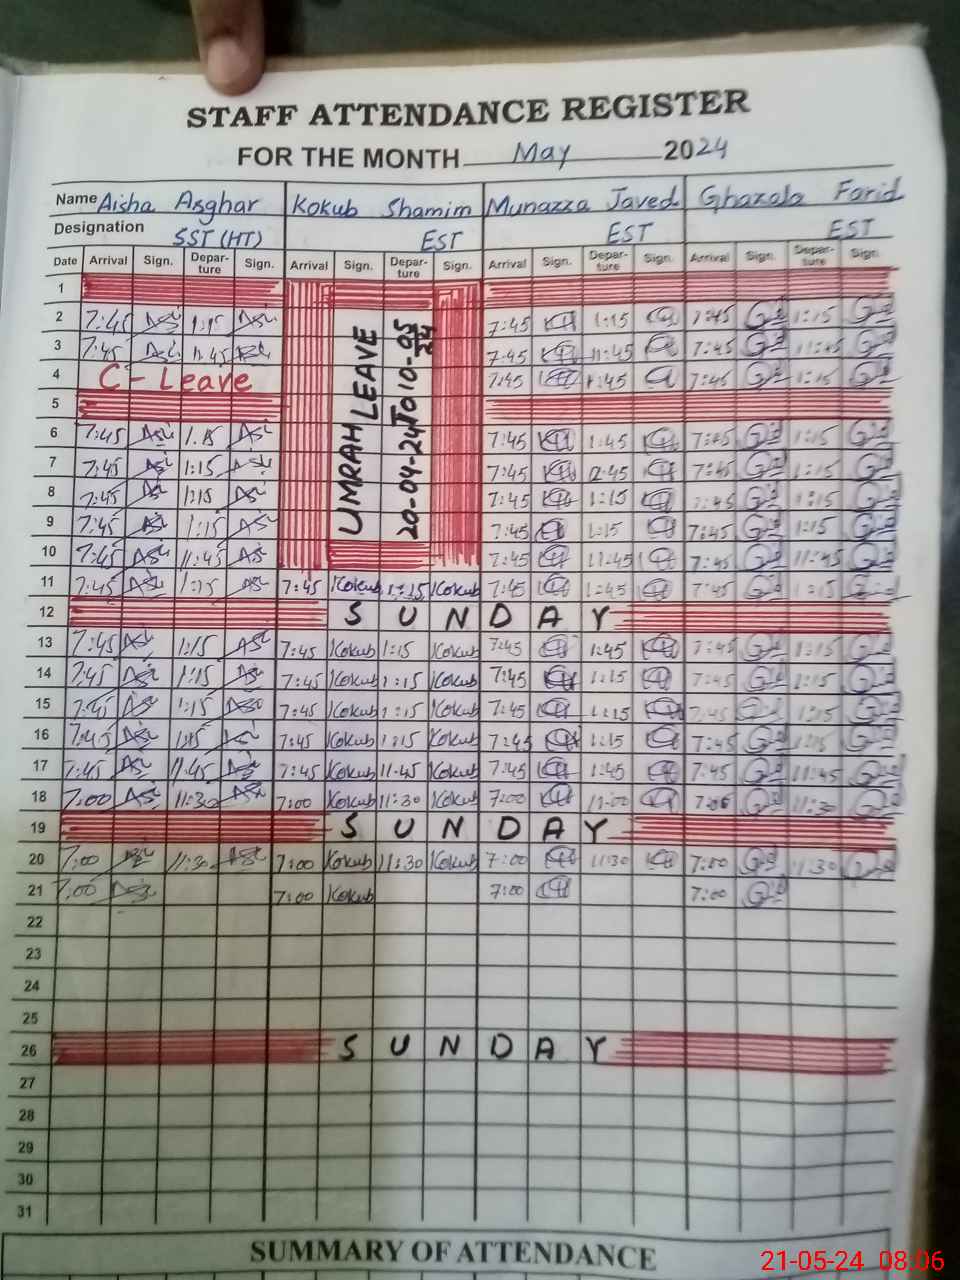 STAFF ATTENDANCE REGISTER
FOR THE MONTH May 2024
Name Aisha Asghar Kokub Shamim Munazza Javed Ghazala Farid
Designation SST (HT) EST EST EST
Date Arrival Sign. Depar-ture Sign. Arrival Sign. Depar-ture Sign. Arrival Sign. Depar-ture Sign. Arrival Sign. Depar-ture Sign.
UMRAH LEAVE
20-04-24 TO 10-05-24
1
2 7:45 1:15 7:45 1:15 7:45 1:15
3 7:45 11:45 7:45 11:45 7:45 11:45
4 C-Leave 7:45 1:45 7:45 1:15
5
6 7:45 1:15 7:45 1:45 7:45 1:15
7 7:45 1:15 7:45 12:45 7:45 1:15
8 7:45 1:15 7:45 1:15 7:45 1:15
9 7:45 1:15 7:45 1:15 7:45 1:15
10 7:45 11:45 7:45 11:45 7:45 11:45
11 7:45 1:15 7:45 Kokub 1:15 Kokub 7:45 1:45 7:45 1:15
12 SUNDAY
13 7:45 1:15 7:45 Kokub 1:15 Kokub 7:45 1:45 7:45 1:15
14 7:45 1:15 7:45 Kokub 1:15 Kokub 7:45 1:15 7:45 1:15
15 7:45 1:15 7:45 Kokub 1:15 Kokub 7:45 1:15 7:45 1:15
16 7:45 1:15 7:45 Kokub 1:15 Kokub 7:45 1:15 7:45 1:15
17 7:45 11:45 7:45 Kokub 11:45 Kokub 7:45 1:45 7:45 11:45
18 7:00 11:30 7:00 Kokub 11:30 Kokub 7:00 11:30
19 SUNDAY
20 7:00 11:30 7:00 Kokub 11:30 Kokub 7:00 11:30 7:00 11:30
21 7:00 7:00 Kokub 7:00 7:00
22
23
24
25
26 SUNDAY
27
28
29
30
31
SUMMARY OF ATTENDANCE
21-05-24 08:06